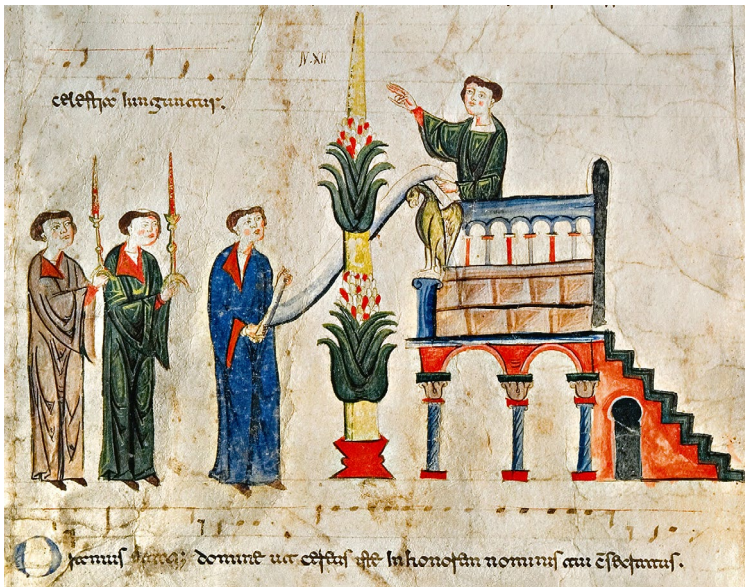 IV.XII
celestia Iunguntur.
Oramus domine ut cereus iste In honorem nominis tui c̄secratus.